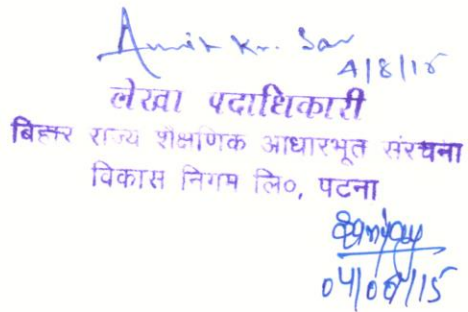 Amit Kr. Sav
4/8/15
लेखा पदाधिकारी
बिहार राज्य शैक्षणिक आधारभूत संरचना
विकास निगम लि०, पटना
04/08/15